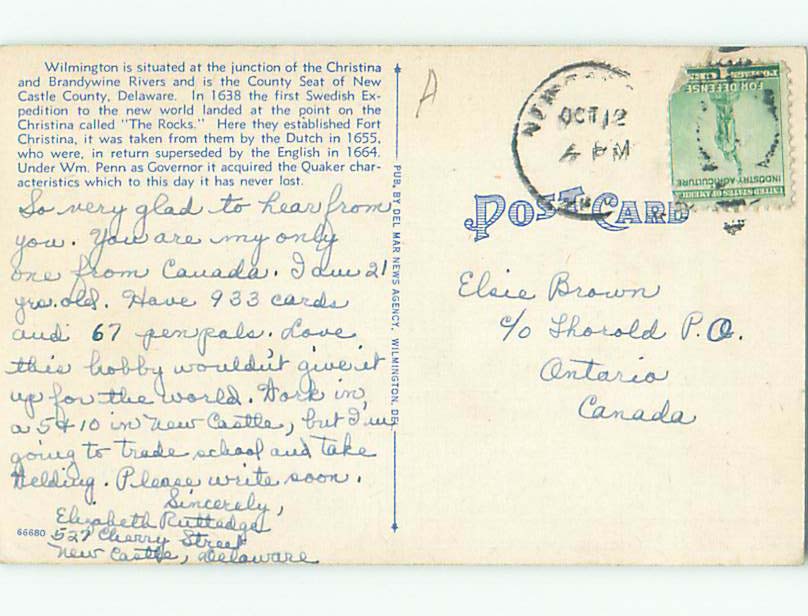 Wilmington is situated at the junction of the Christina
and Brandywine Rivers and is the County Seat of New
Castle County, Delaware. In 1638 the first Swedish Ex-
pedition to the new world landed at the point on the
Christina called "The Rocks." Here they established Fort
Christina, it was taken from them by the Dutch in 1655,
who were, in return superseded by the English in 1664.
Under Wm. Penn as Governor it acquired the Quaker char-
acteristics which to this day it has never lost.
So very glad to hear from
you. You are my only
one from Canada. I am 21
yrs. old. Have 933 cards
and 67 pen pals. Love
this hobby wouldn't give it
up for the world. Work in
a 5 & 10 in New Castle, but I'm
going to trade school and take
Welding. Please write soon.
Sincerely,
Elizabeth Rutledge
527 Cherry Street
New Castle, Delaware
66680
PUB. BY DEL MAR NEWS AGENCY, WILMINGTON, DEL.
A
OCT 12
4 PM
POST CARD
1¢
POSTAGE
FOR DEFENSE
INDUSTRY-AGRICULTURE
UNITED STATES OF AMERICA
Elsie Brown
c/o Thorold P.O.
Ontario
Canada